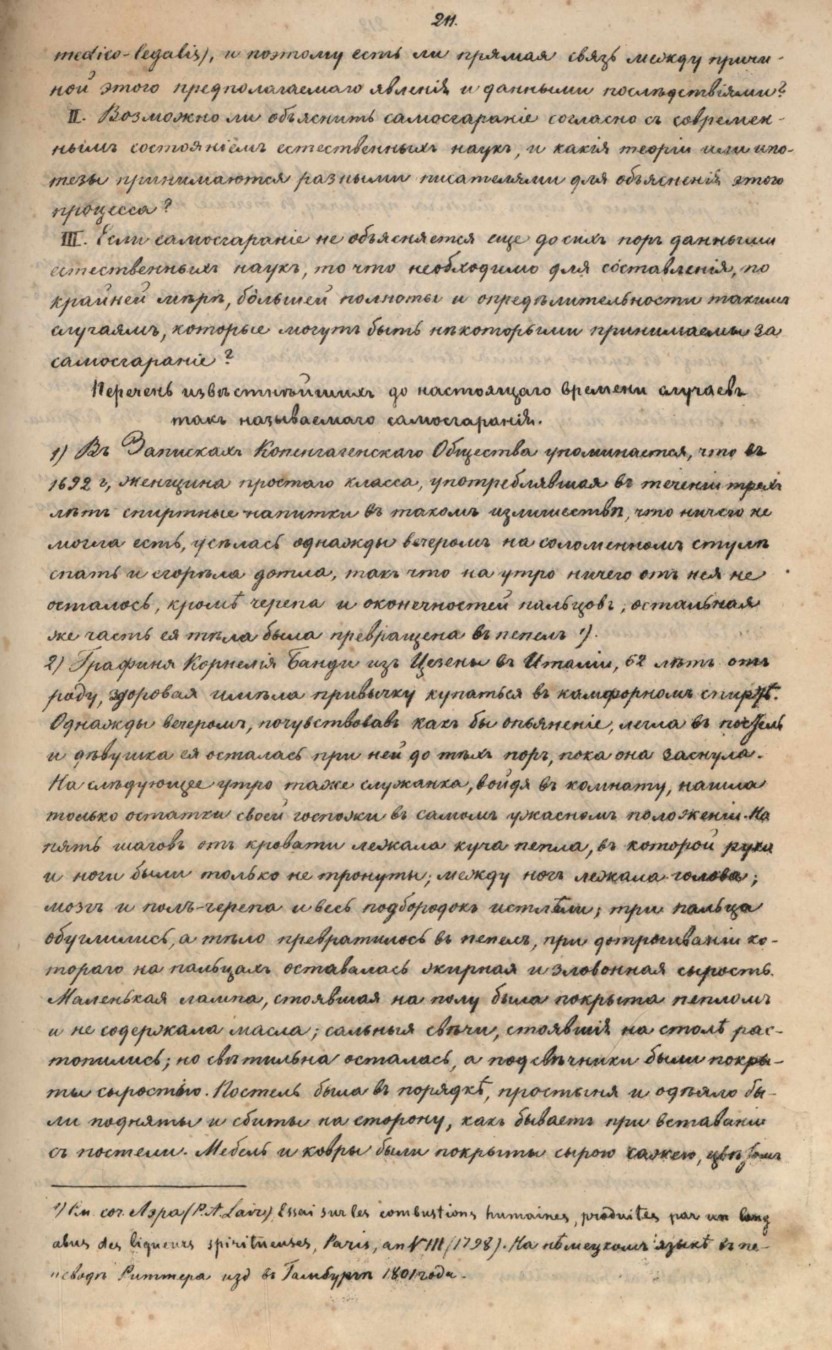 211.
medico-legalis), и поэтому есть ли прямая связь между причи-
ной этого предполагаемаго явленія и данными послѣдствіями?
II. Возможно ли объяснить самосгараніе согласно съ современ-
нымъ состояніемъ естественныхъ наукъ, и какія теоріи или ипо-
тезы принимаются разными писателями для объясненія этого
процесса?
III. Если самосгараніе не объясняется еще до сихъ поръ данными
естественныхъ наукъ, то что необходимо для составленія, по
крайней мѣрѣ, большей полноты и опредѣлительности такимъ
случаямъ, которые могутъ быть нѣкоторыми принимаемы за
самосгараніе?
Перечень извѣстнѣйшихъ до настоящаго времени случаевъ
такъ называемаго самосгаранія.
1) Въ Запискахъ Копенгагенскаго Общества упоминается, что въ
1692 г, женщина простаго класса, употреблявшая въ теченіи трехъ
лѣтъ спиртные напитки въ такомъ излишествѣ, что ничего не
могла есть, усѣлась однажды вечеромъ на соломенномъ стулѣ
спать и сгорѣла дотла, такъ что на утро ничего отъ нея не
осталось, кромѣ черепа и оконечностей пальцовъ, остальная
же часть ея тѣла была превращена въ пепелъ ¹).
2) Графиня Корнелія Банди изъ Цезены въ Италіи, 62 лѣтъ отъ
роду, здоровая имѣла привычку купаться въ камфорномъ спиртѣ.
Однажды вечеромъ, почувствовавъ какъ бы опьяненіе, легла въ постель
и дѣвушка ея осталась при ней до тѣхъ поръ, пока она заснула.
На слѣдующее утро таже служанка, войдя въ комнату, нашла
только остатки своей госпожи въ самомъ ужасномъ положеніи. На
пять шаговъ отъ кровати лежала куча пепла, въ которой рука
и ноги были только не тронуты; между ногъ лежала голова;
мозгъ и полъ-черепа и весь подбородокъ истлѣли; три пальца
обуглились, а тѣло превратилось въ пепелъ, при дотрогиваніи ко-
тораго на пальцахъ оставалась жирная и зловонная сырость.
Маленькая лампа, стоявшая на полу была покрыта пепломъ
и не содержала масла; сальныя свѣчи, стоявшія на столѣ рас-
топились; но свѣтильна осталась, а подсвѣчники были покры-
ты сыростью. Постель была въ порядкѣ, простыня и одѣяло бы-
ли подняты и сбиты на сторону, какъ бываетъ при вставаніи
съ постели. Мебель и ковры были покрыты сырою сажею, цвѣтомъ
¹) См. соч. Лэра (P. A. Lair). Essai sur les combustions humaines, produites par un long
abus des liqueurs spiritueuses, Paris, an VIII (1798). На нѣмецкомъ языкѣ въ пе-
реводѣ Риттера изд въ Гамбургѣ 1801 года.